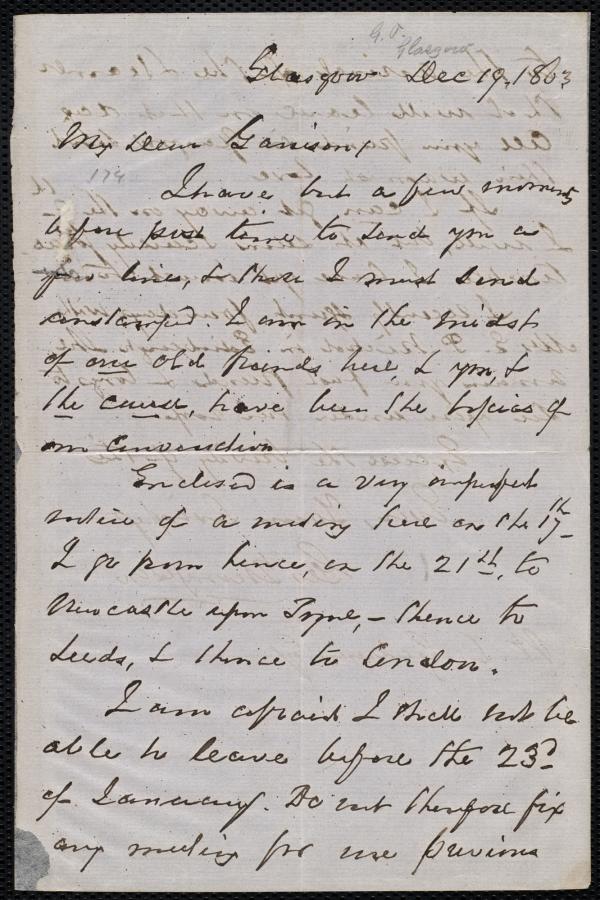 G. T.
Glasgow
Glasgow Dec 19. 1863
My Dear Garrison,
174
I have but a few moments
before post time to send you a
few lines, & these I must send
unstamped. I am in the midst
of our old friends here, & you, &
the cause, have been the topics of
our conversation
Enclosed is a very imperfect
notice of a meeting here on the 17th
I go from hence, on the 21st, to
Newcastle upon Tyne, – thence to
Leeds, & thence to London.
I am afraid I shall not be
able to leave before the 23d
of January. Do not therefore fix
any meeting for me previous